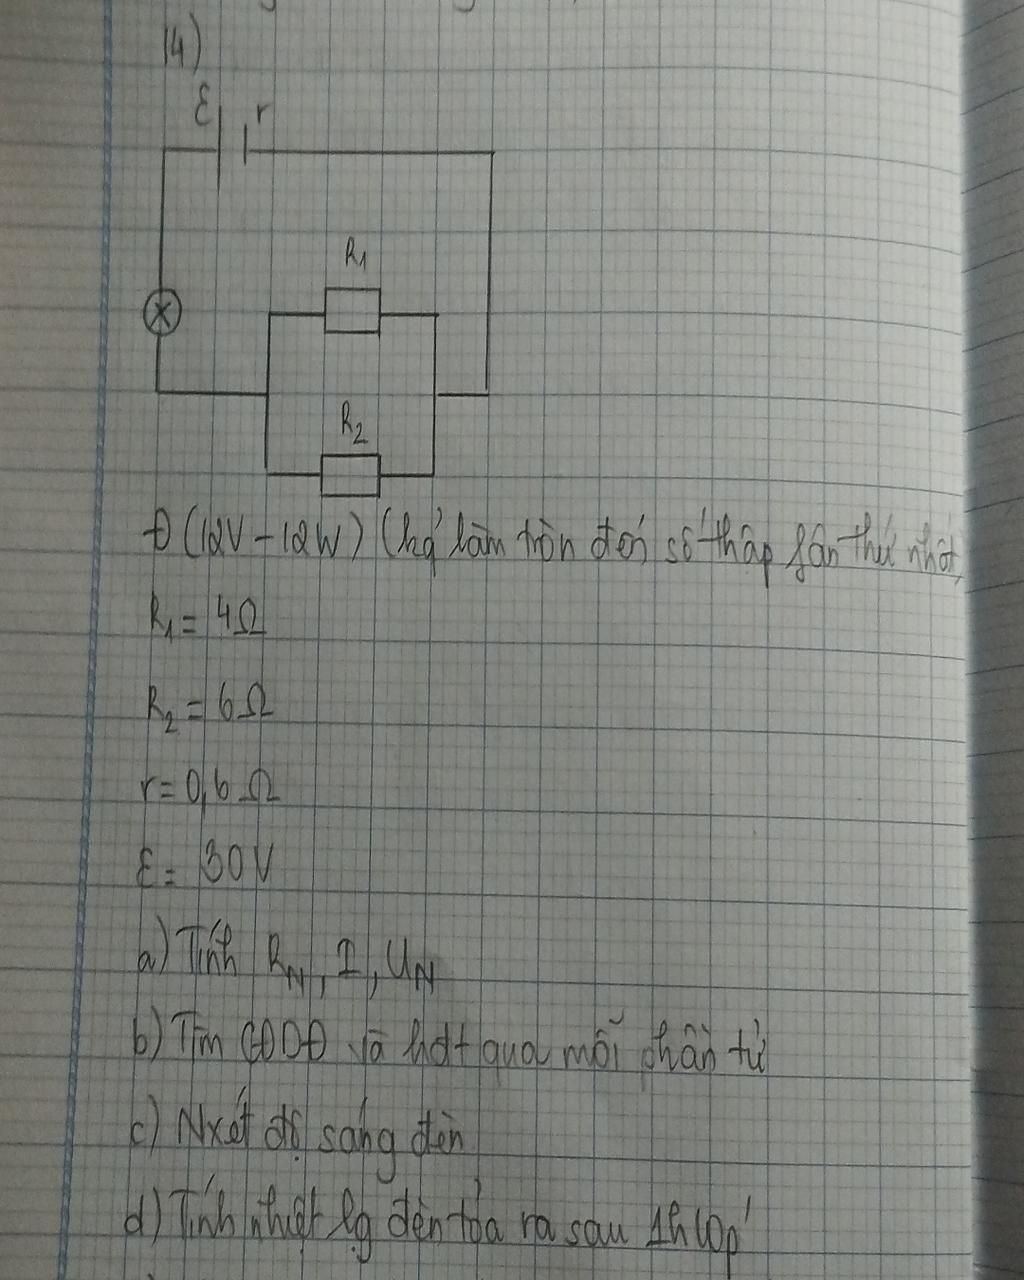 14)
ε r
R₁
R₂
Đ (12V - 12W) (kq' làm tròn đến số thập fân thứ nhất)
R₁ = 4Ω
R₂ = 6Ω
r = 0,6 Ω
ε = 30V
a) Tính R_N, I, U_N
b) Tìm CĐDĐ và hdt qua mỗi phần tử
c) Nxét độ sáng đèn
d) Tính nhiệt lg đèn tỏa ra sau 1h 10p'